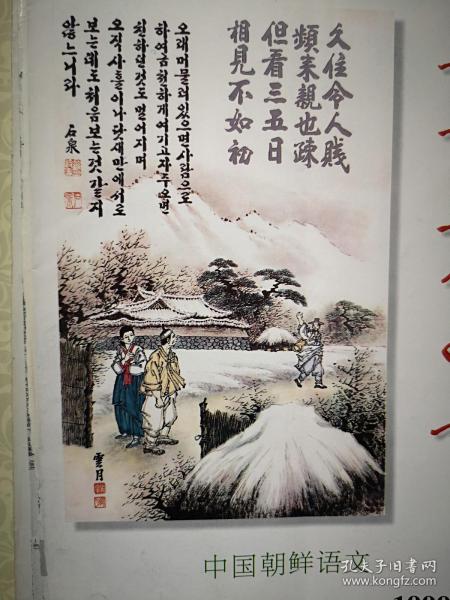 久住令人賤
頻来親也疎
但看三五日
相見不如初
오래머물러있으면사람으로
하여금천하게여기고자주오면
친하던것도멀어지며
오직사흘이나닷새만에서로
보는데도처음보는것같지
않느니라
石泉
雲月
中国朝鲜语文
孔夫子旧书网